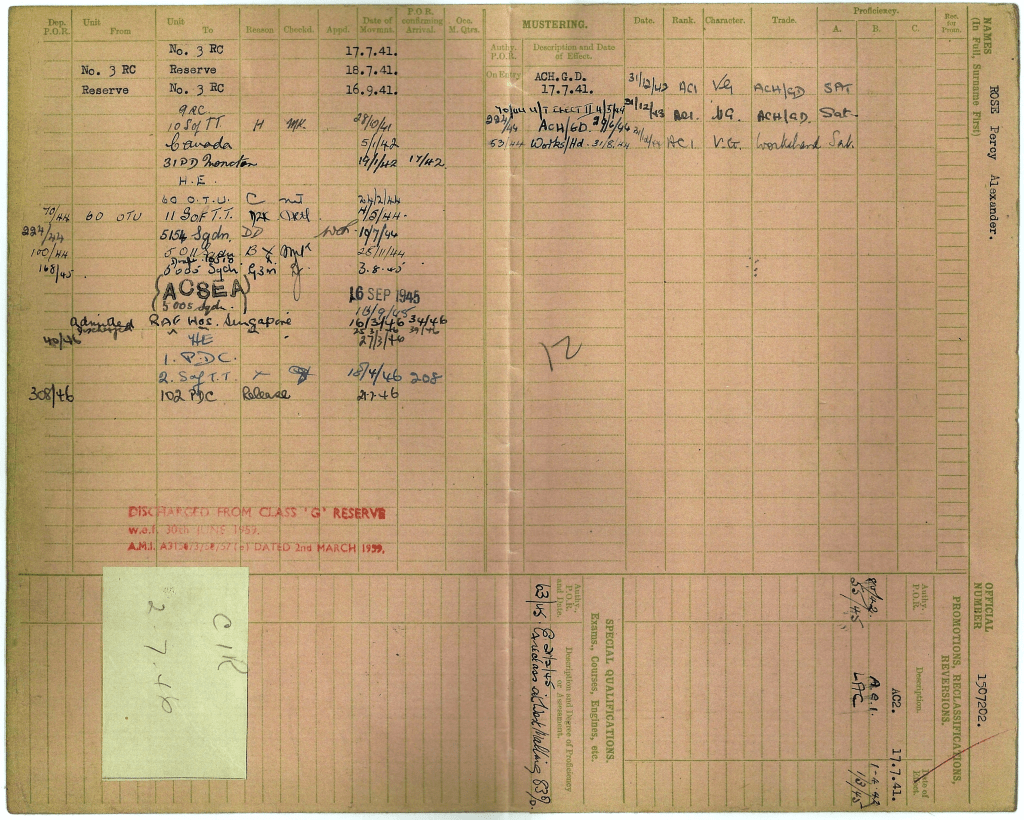 Dep. P.O.R. Unit From Unit To Reason Checkd. Appd. Date of Movemnt. P.O.R. confirming Arrival. Occ. M. Qtrs.
No. 3 RC 17.7.41.
No. 3 RC Reserve 18.7.41.
Reserve No. 3 RC 16.9.41.
9RC.
10 S of TT. H 28/10/41
Canada 5/1/42
31 PD Moncton 19/1/42 17/42.
H.E.
60 O.T.U. C 24/2/44
70/44 60 OTU 11 S OF T.T. /5/44.
224/44 5154 Sqdn. DD 19/7/44
100/44 B X 25/11/44
168/45 Sqdn 3.8.45
(ACSEA) 16 SEP 1945
5005 Sqdn. 16/9/45
Admitted RAF Hos. Singapore 16/3/46 34/46
Discharged
40/46 HE 27/3/46
1. P.D.C.
2. S of T.T. X 18/4/46 208
308/46 102 PDC Release 2.7.46
DISCHARGED FROM CLASS 'G' RESERVE
w.e.f. 30th JUNE 1959.
DATED 2nd MARCH 1959.
C1R
2.7.46
MUSTERING.
Authy. P.O.R. Description and Date of Effect.
On Entry ACH.G.D.
17.7.41.
70/44 U/T
224/44 ACH/GD.
53/44 Works/Hd. 31/8/44
12
Proficiency.
Date. Rank. Character. Trade. A. B. C. Rec. for Prom.
31/12/42 AC1 VG ACH/GD SAT
31/12/43 AC1. VG. ACH/GD. Sat.
AC1. V.G. Workshand Sat.
NAMES (In Full, Surname First) ROSE Percy Alexander.
OFFICIAL NUMBER 1507202.
PROMOTIONS, RECLASSIFICATIONS, REVERSIONS.
Authy. P.O.R. Description. Date of Effect.
AC2. 17.7.41.
A.C.1. 1-4-42
55/45 LAC 1/3/45
SPECIAL QUALIFICATIONS.
Exams., Courses, Engines, etc.
Authy. P.O.R. and Date. Description and Degree of Proficiency or Assessment.
63/45